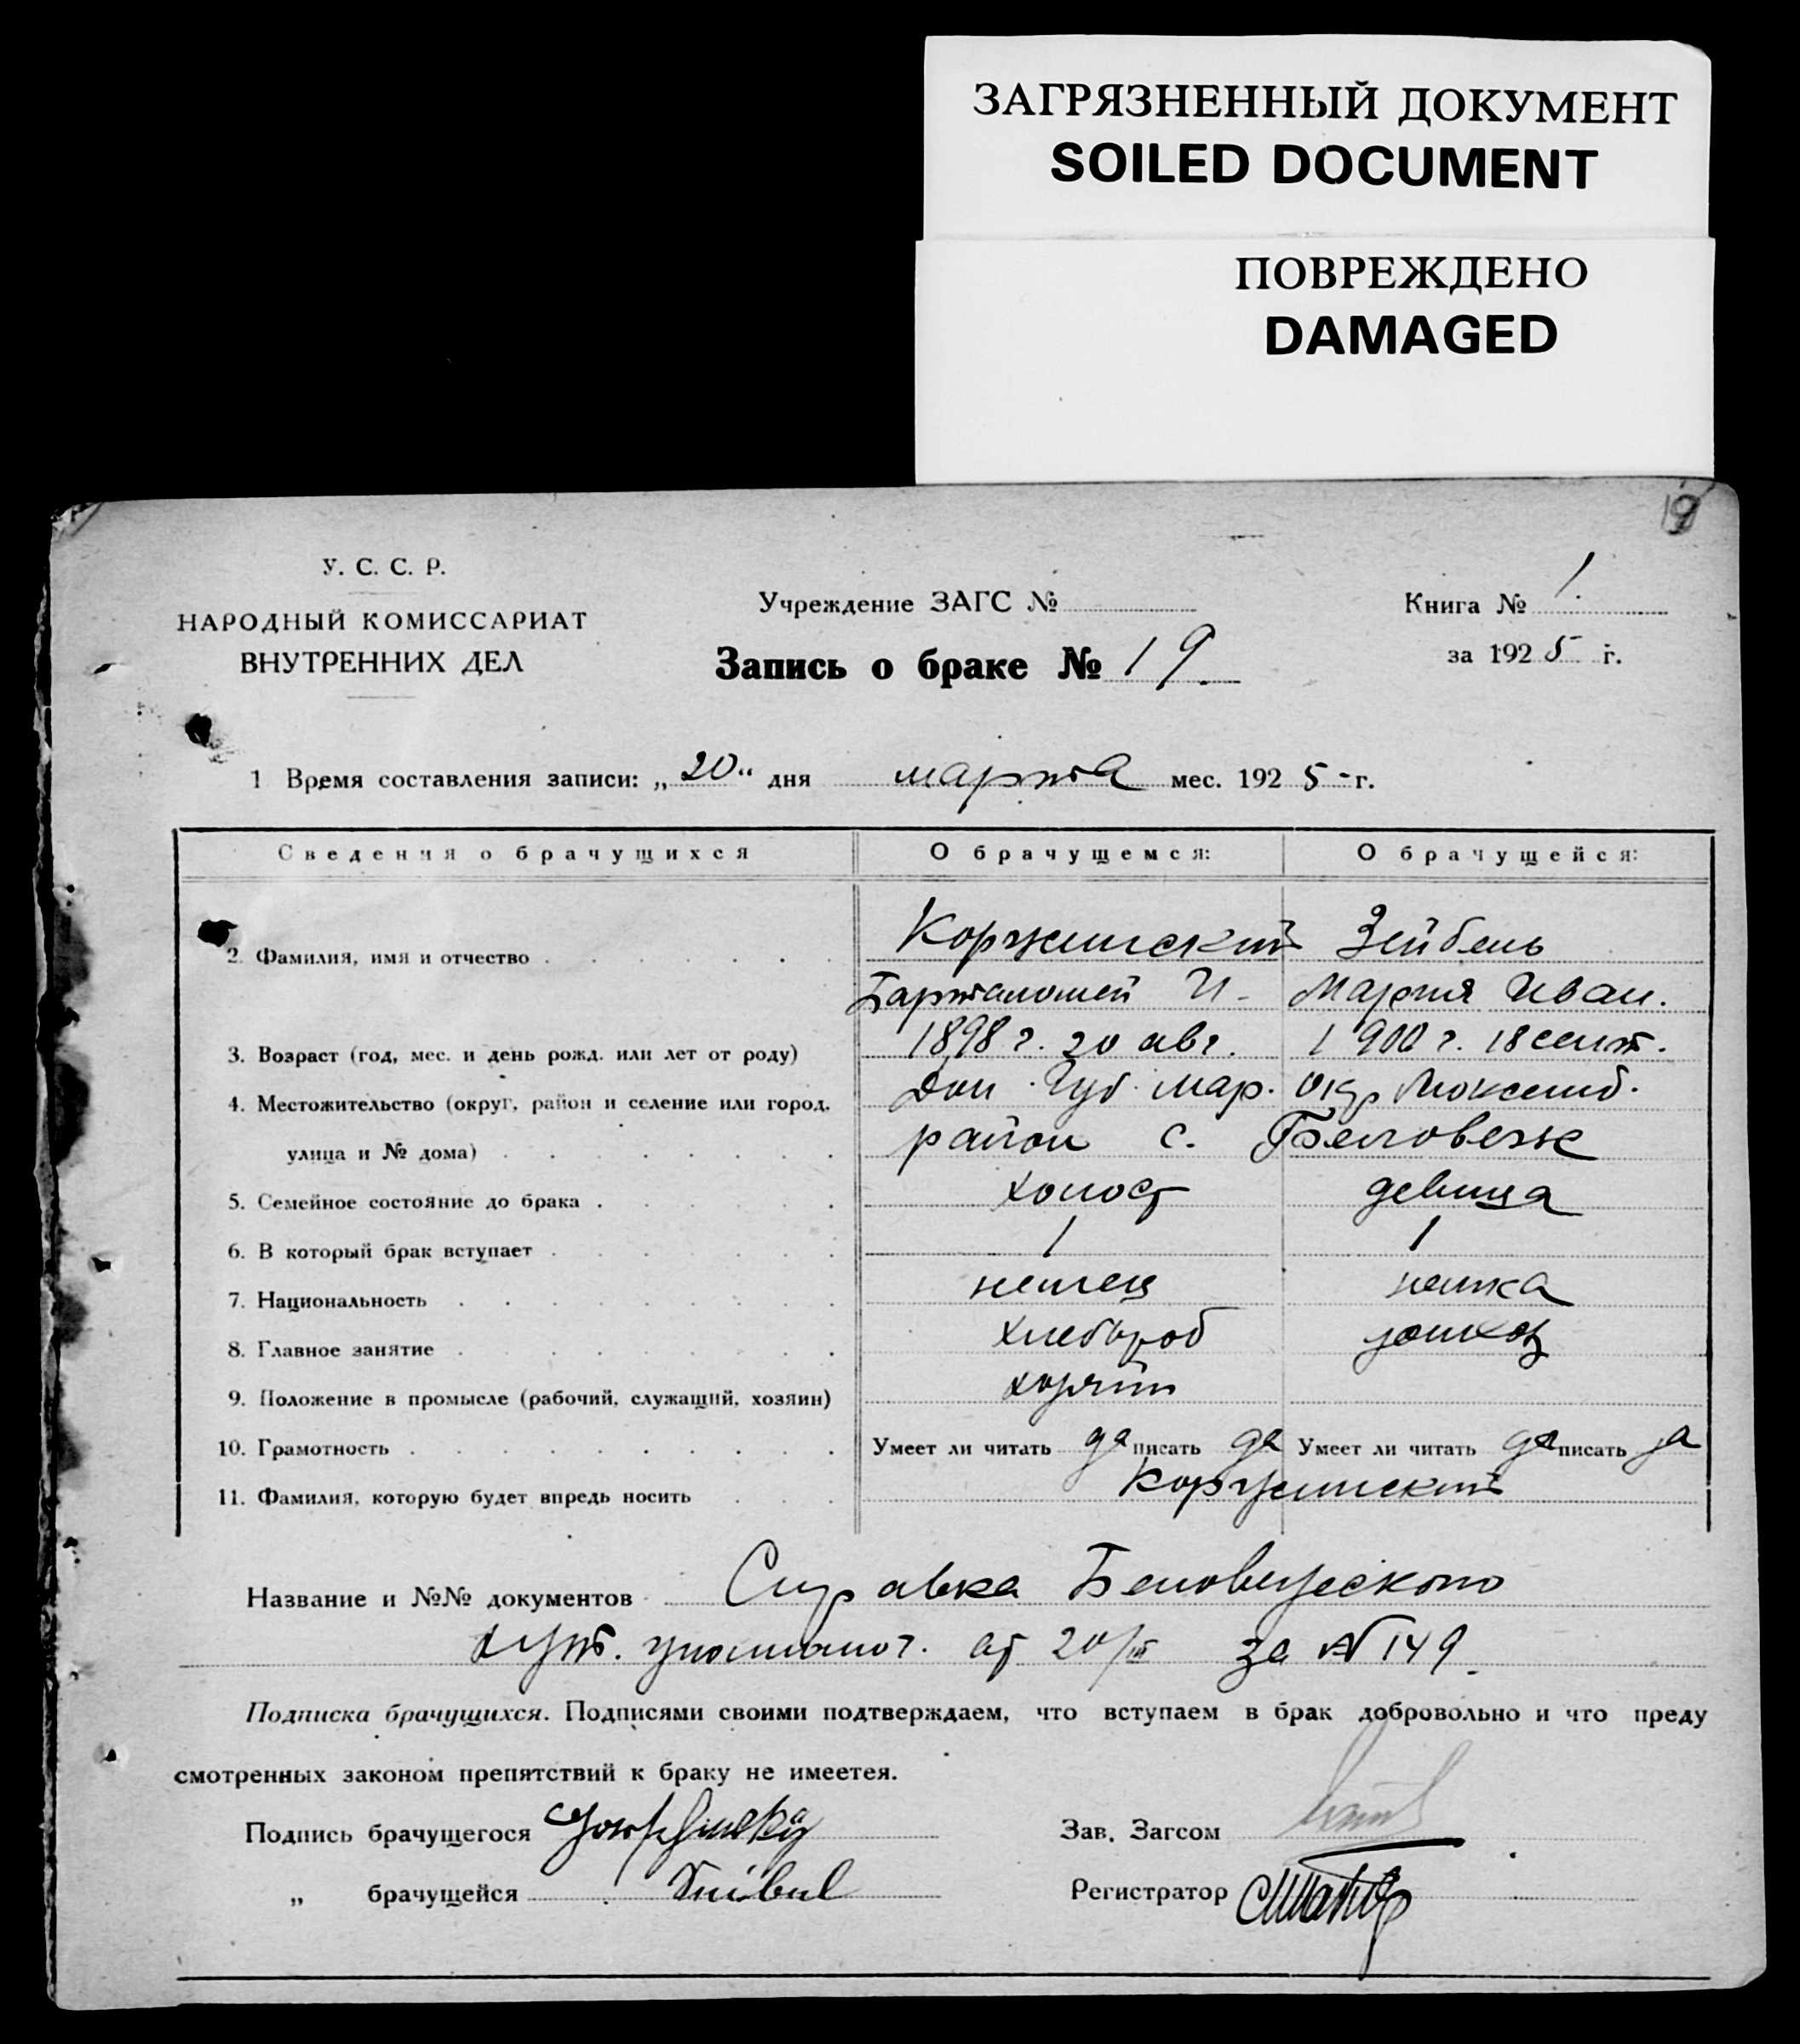 ЗАГРЯЗНЕННЫЙ ДОКУМЕНТ
SOILED DOCUMENT
ПОВРЕЖДЕНО
DAMAGED
19
У. С. С. Р.
НАРОДНЫЙ КОМИССАРИАТ
ВНУТРЕННИХ ДЕЛ
Учреждение ЗАГС №
Запись о браке № 19.
Книга № 1.
за 1925 г.
1 Время составления записи: „20“ дня марта мес. 1925-г.
Сведения о брачущихся О брачущемся: О брачущейся:
Коржинский Зейбель
2. Фамилия, имя и отчество
Барталомей И- Мария Иван.
3. Возраст (год, мес. и день рожд. или лет от роду) 1898 г. 20 авг. 1900 г. 18 сент.
4. Местожительство (округ, район и селение или город, Дон. Губ. Мар. Окр Люксемб.
улица и № дома) район с. Беловеж
5. Семейное состояние до брака холост девица
6. В который брак вступает 1 1
7. Национальность немец немка
8. Главное занятие хлебороб
9. Положение в промысле (рабочий, служащий, хозяин) хозяин
10. Грамотность Умеет ли читать да писать да Умеет ли читать да писать да
11. Фамилия, которую будет впредь носить Коржинский
Название и №№ документов Справка Беловежского
уполномоч. от 20/III за № 149.
Подписка брачущихся. Подписями своими подтверждаем, что вступаем в брак добровольно и что преду
смотренных законом препятствий к браку не имеетея.
Подпись брачущегося
Зав. Загсом
„ брачущейся Seibel
Регистратор